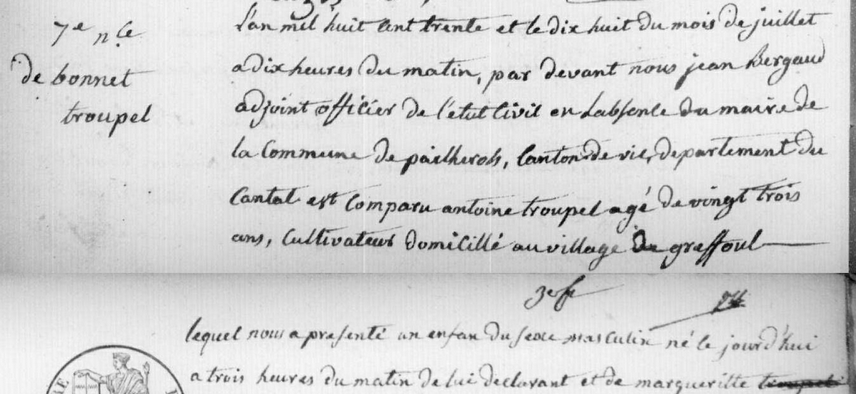 7e nce
de bonnet
troupel
L'an mil huit cent trente et le dix huit du mois de juillet
a dix heures du matin, par devant nous jean Bergaud
adjoint officier de l'état Civil en L'absence du maire de
la Commune de pailherols, Canton de vic, departement du
Cantal est Comparu antoine troupel agé de vingt trois
ans, Cultivateur domicillé au village de greffoul
3e fe
lequel nous a presenté un enfan du sexe masculin né le jourd'hui
a trois heures du matin de lui declarant et de margueritte troupel